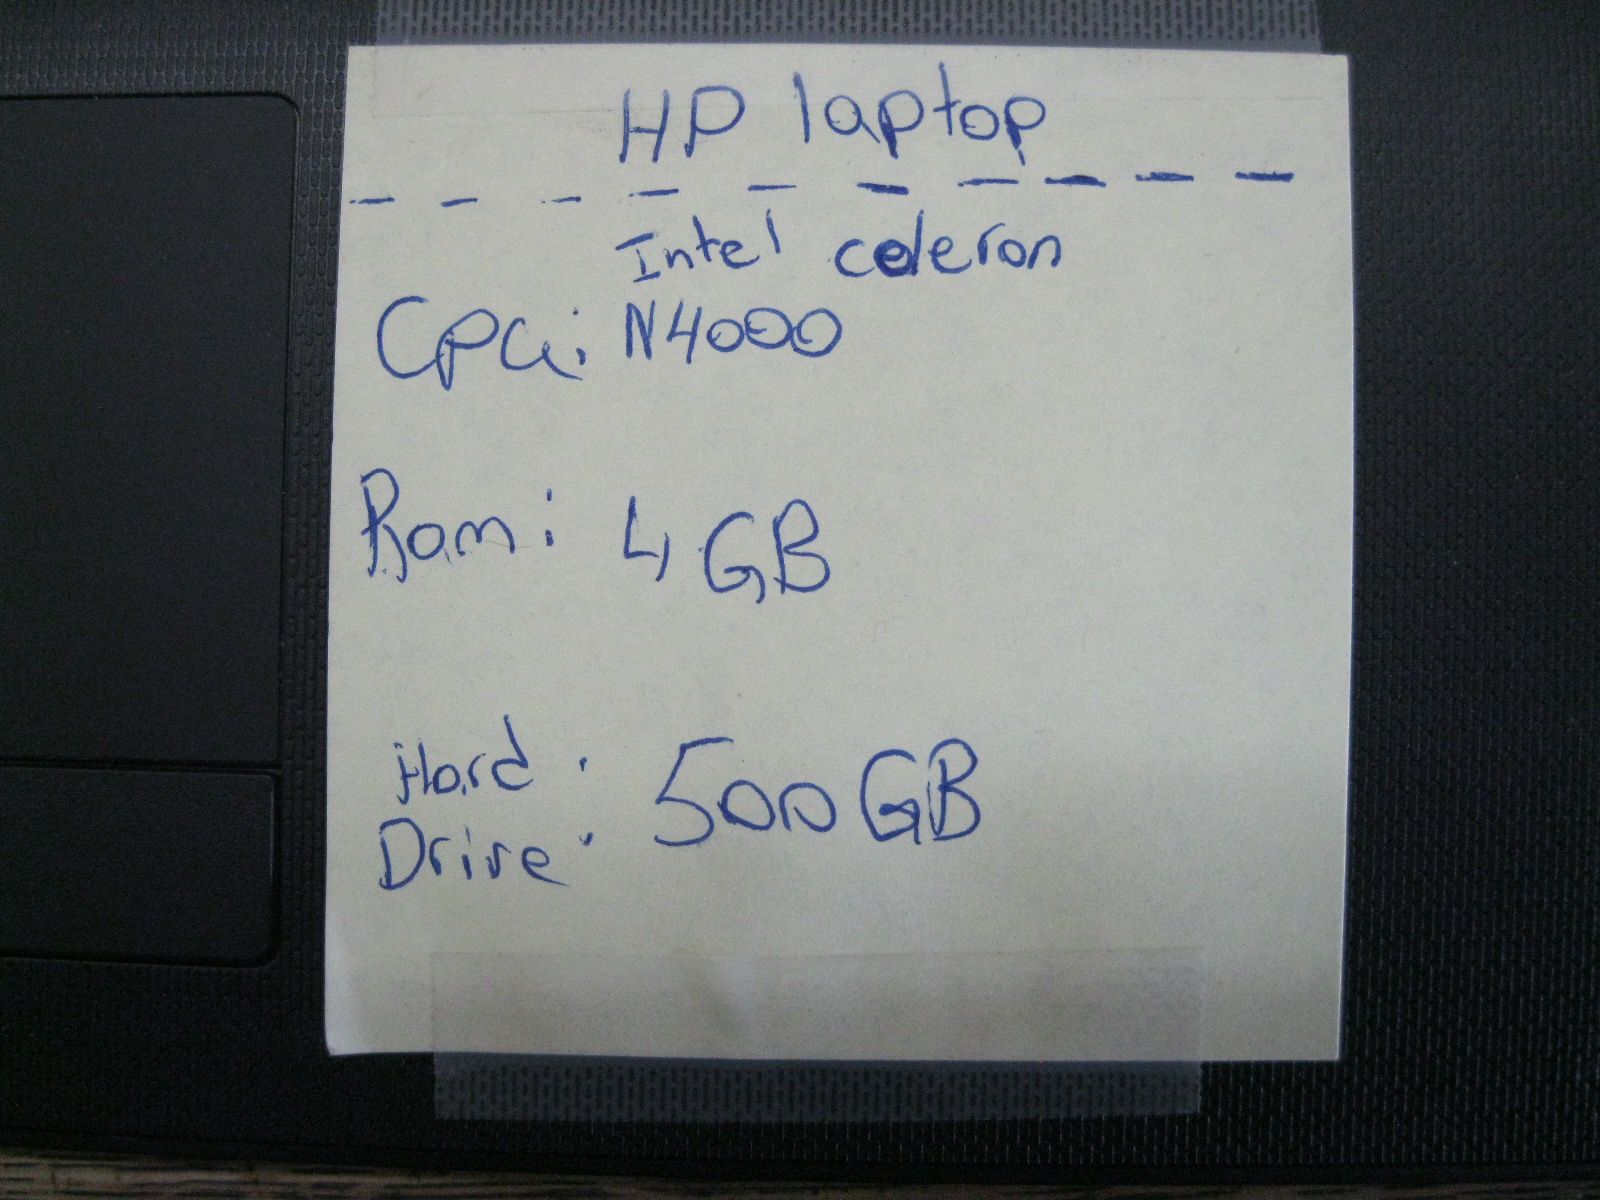 HP laptop
Intel celeron
CPU: N4000
Ram: 4 GB
Hard :
Drive: 500 GB